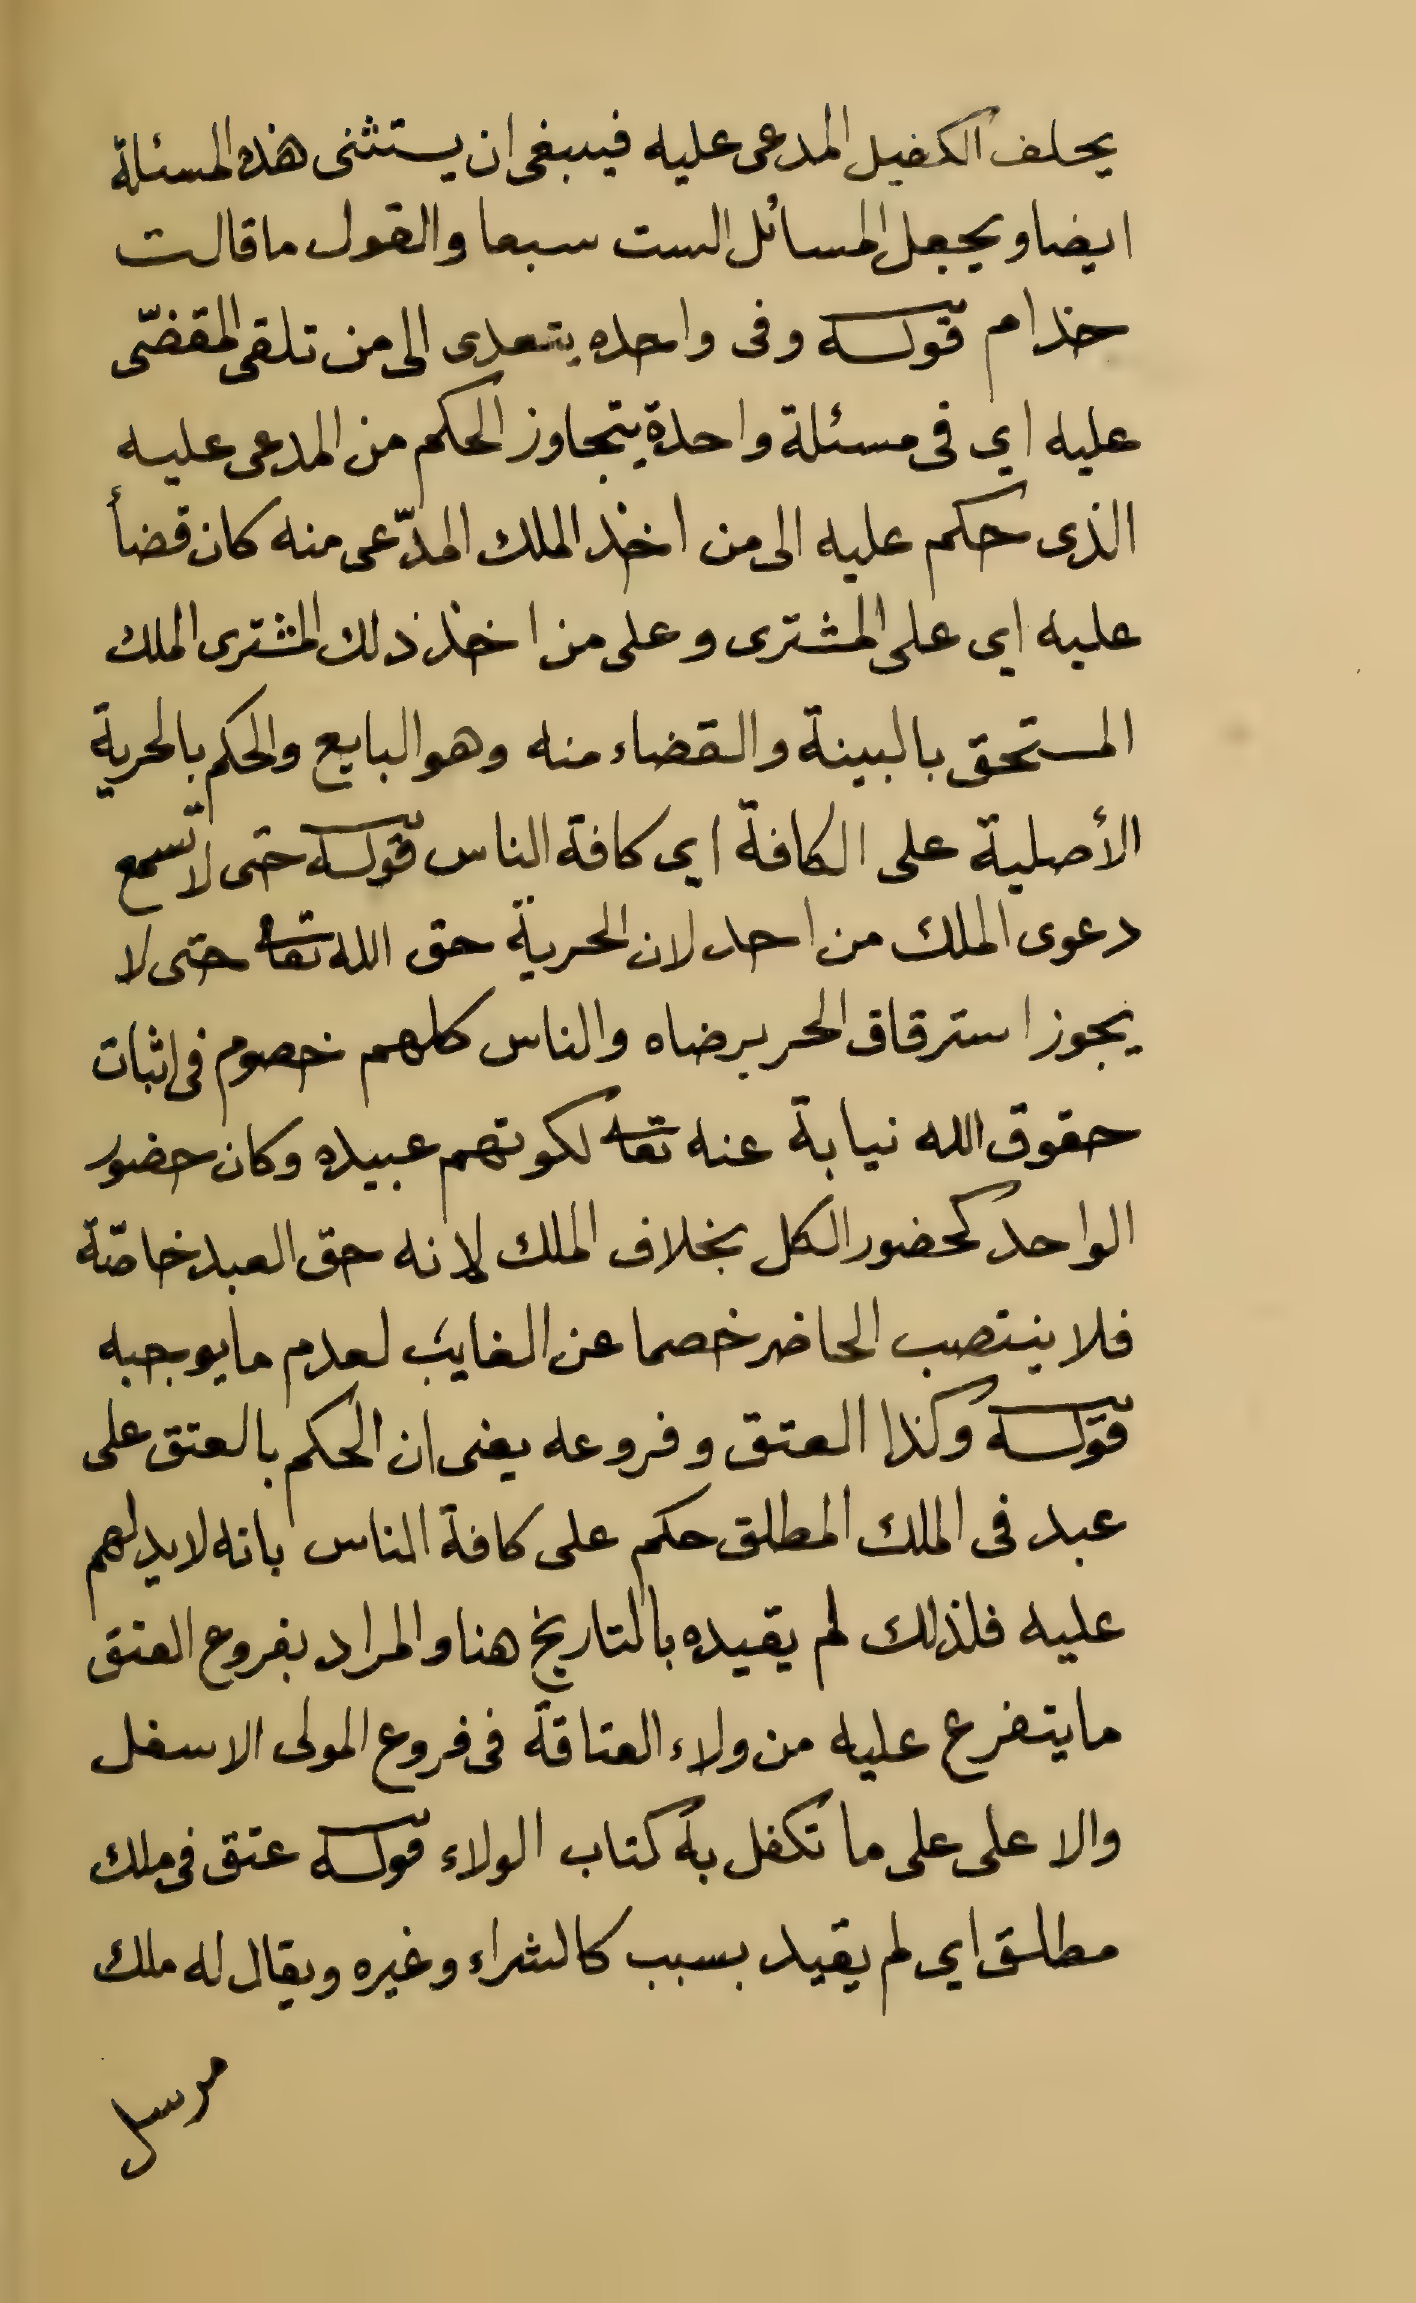 يحلف الكفيل المدعى عليه فينبغى ان يستثنى هذه المسئلة
ايضا ويجعل المسائل الست سبعا والقول ما قالت
خذام قوله وفى واحده يتعدى الى من تلقى المقضّى
عليه اي فى مسئلة واحدة يتجاوز الحكم من المدعى عليه
الذى حكم عليه الى من اخذ الملك المدّعى منه كان قضأ
عليه اى على المشترى وعلى من اخذ ذلك المشترى الملك
المستحق بالبينة والقضاء منه وهو البايع والحكم بالحرية
الأصلية على الكافة اى كافة الناس قوله حتى لا تسمع
دعوى الملك من احد لان الحرية حق الله تعا حتى لا
يجوز استرقاق الحر برضاه والناس كلهم خصوم فى اثبات
حقوق الله نيابة عنه تعا لكونهم عبيده وكان حضور
الواحد كحضور الكل بخلاف الملك لانه حق العبد خاصّة
فلا ينتصب الحاضر خصما عن الغايب لعدم ما يوجبه
قوله وكذا العتق وفروعه يعنى ان الحكم بالعتق على
عبد فى الملك المطلق حكم على كافة الناس بانه لا يد لهم
عليه فلذلك لم يقيده بالتاريخ هنا والمراد بفروع العتق
ما يتفرع عليه من ولاء العتاقة فى فروع المولى الاسفل
والاعلى على ما تكفل به كتاب الولاء قوله عتق فى ملك
مطلق اى لم يقيد بسبب كالشراء وغيره ويقال له ملك
مرسل